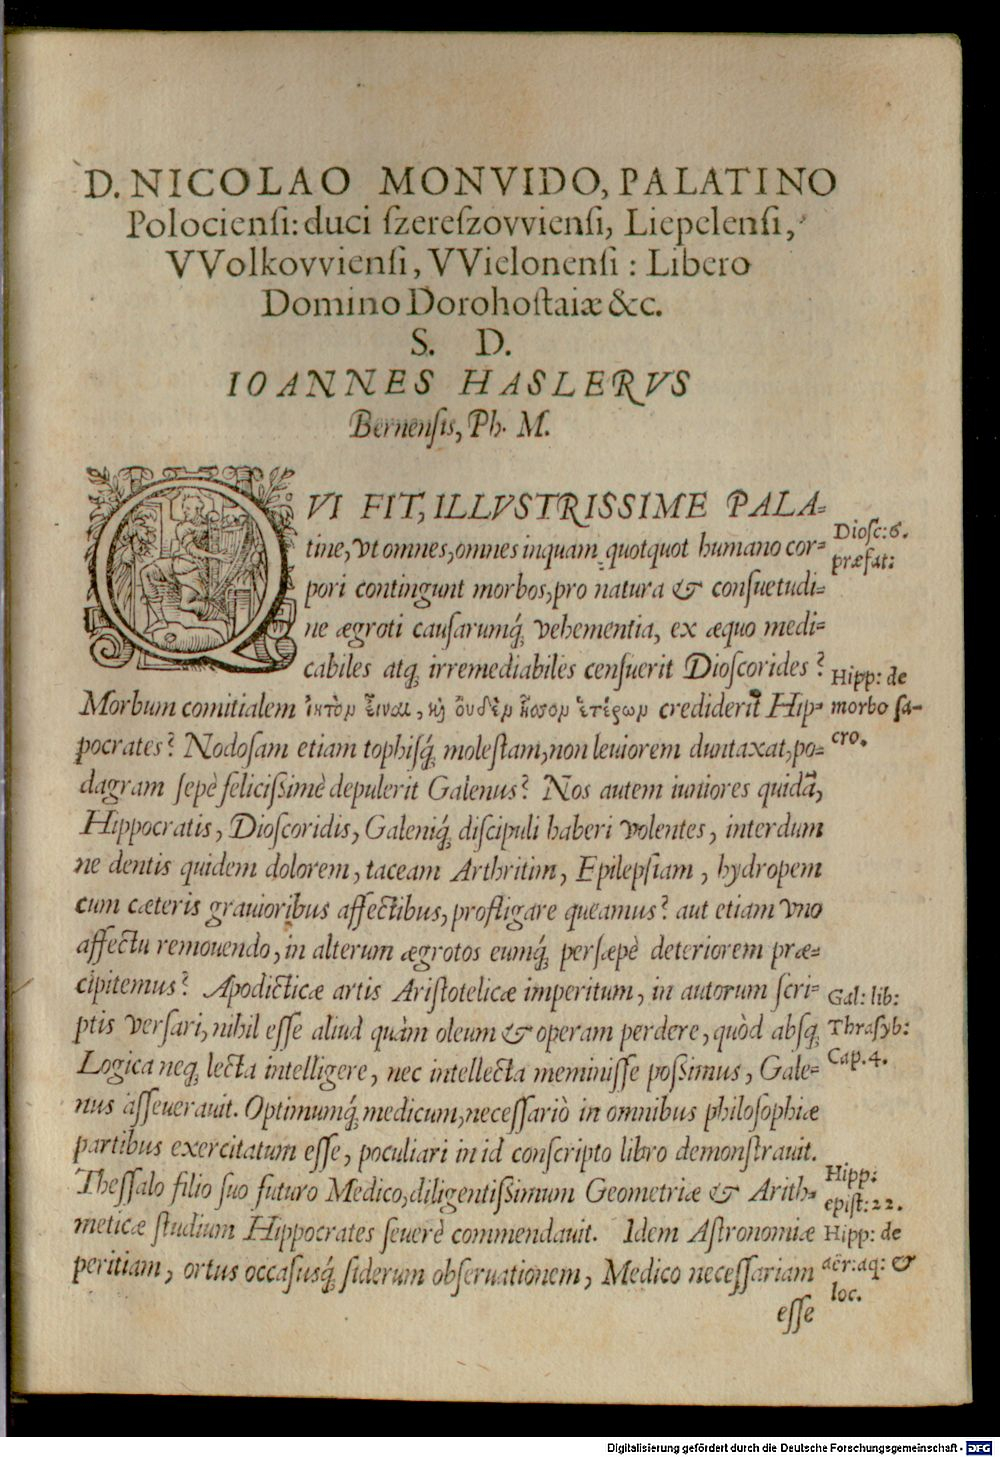 D. NICOLAO MONVIDO, PALATINO
Polociensi: duci szereszovviensi, Liepelensi,
VVolkovviensi, VVielonensi: Libero
Domino Dorohostaiæ &c.
S. D.
IOANNES HASLERVS
Bernensis, Ph. M.
QVI FIT, ILLVSTRISSIME PALA=
tine, vt omnes, omnes inquam quotquot humano cor=
Diosc: 6.
præfat:
pori contingunt morbos, pro natura & consuetudi=
ne ægroti causarumq́; vehementia, ex æquo medi=
cabiles atq; irremediabiles censuerit Dioscorides?
Hipp: de
morbo sa-
cro.
Morbum comitialem ἰητὸν εἶναι, καὶ οὐδὲν ἧσσον ἑτέρων crediderit Hip=
pocrates? Nodosam etiam tophisq́; molestam, non leuiorem duntaxat, po=
dagram sepè felicissimè depulerit Galenus? Nos autem iuniores quidã,
Hippocratis, Dioscoridis, Galeniq́; discipuli haberi volentes, interdum
ne dentis quidem dolorem, taceam Arthritim, Epilepsiam, hydropem
cum cæteris grauioribus affectibus, profligare queamus? aut etiam vno
affectu remouendo, in alterum ægrotos eumq́; persæpè deteriorem præ=
cipitemus? Apodicticæ artis Aristotelicæ imperitum, in autorum scri=
Gal: lib:
Thrasyb:
Cap. 4.
ptis versari, nihil esse aliud quàm oleum & operam perdere, quòd absq;
Logica neq; lecta intelligere, nec intellecta meminisse possimus, Gale=
nus asseuerauit. Optimumq́; medicum, necessariò in omnibus philosophiæ
partibus exercitatum esse, peculiari in id conscripto libro demonstrauit.
Hipp:
epist: 22.
Thessalo filio suo futuro Medico, diligentissimum Geometriæ & Arith=
meticæ studium Hippocrates seuerè commendauit. Idem Astronomiæ
Hipp: de
aër: aq: &
loc.
peritiam, ortus occasusq́; siderum obseruationem, Medico necessariam
esse
Digitalisierung gefördert durch die Deutsche Forschungsgemeinschaft - DFG